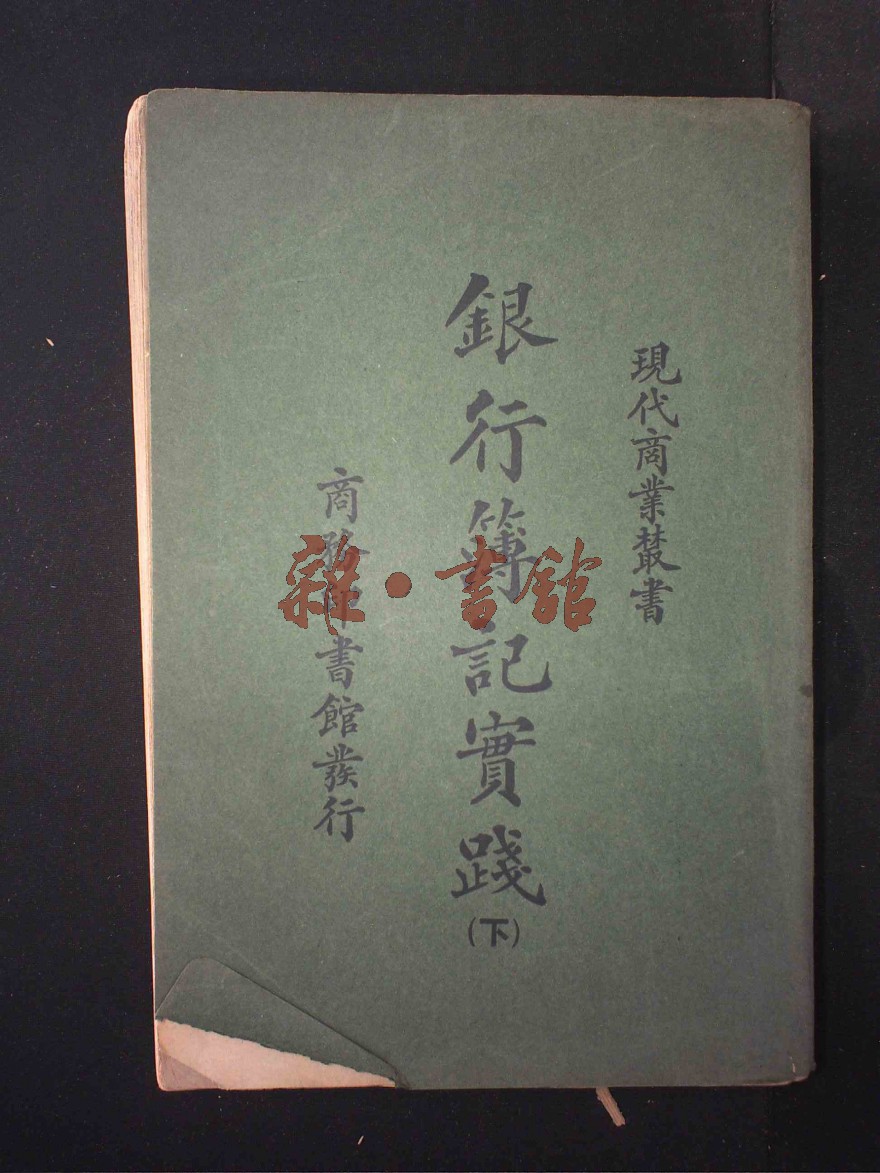 現代商業叢書
銀行簿記實踐
(下)
商務印書館發行
雜·書館